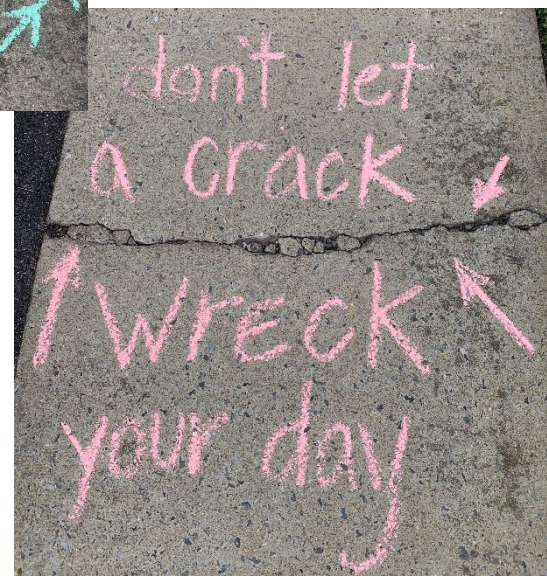 don't let
a crack
wreck
your day